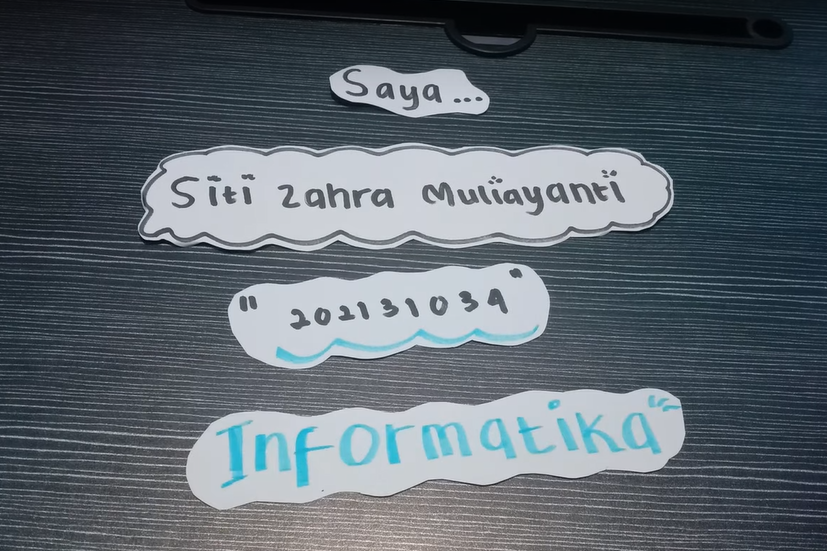 Saya...
Siti Zahra Muliayanti
"202131034"
Informatika